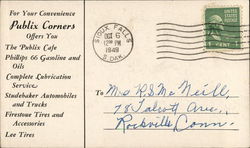 For Your Convenience
Publix Corners
Offers You
The Publix Cafe
Phillips 66 Gasoline and
Oils
Complete Lubrication
Service
Studebaker Automobiles
and Trucks
Firestone Tires and
Accessories
Lee Tires
SIOUX FALLS
OCT 6
12 PM
1949
S. DAK.
UNITED STATES
POSTAGE
1 CENT
To Mrs R S McNeill,
78 Talcott Ave,
Rockville, Conn.